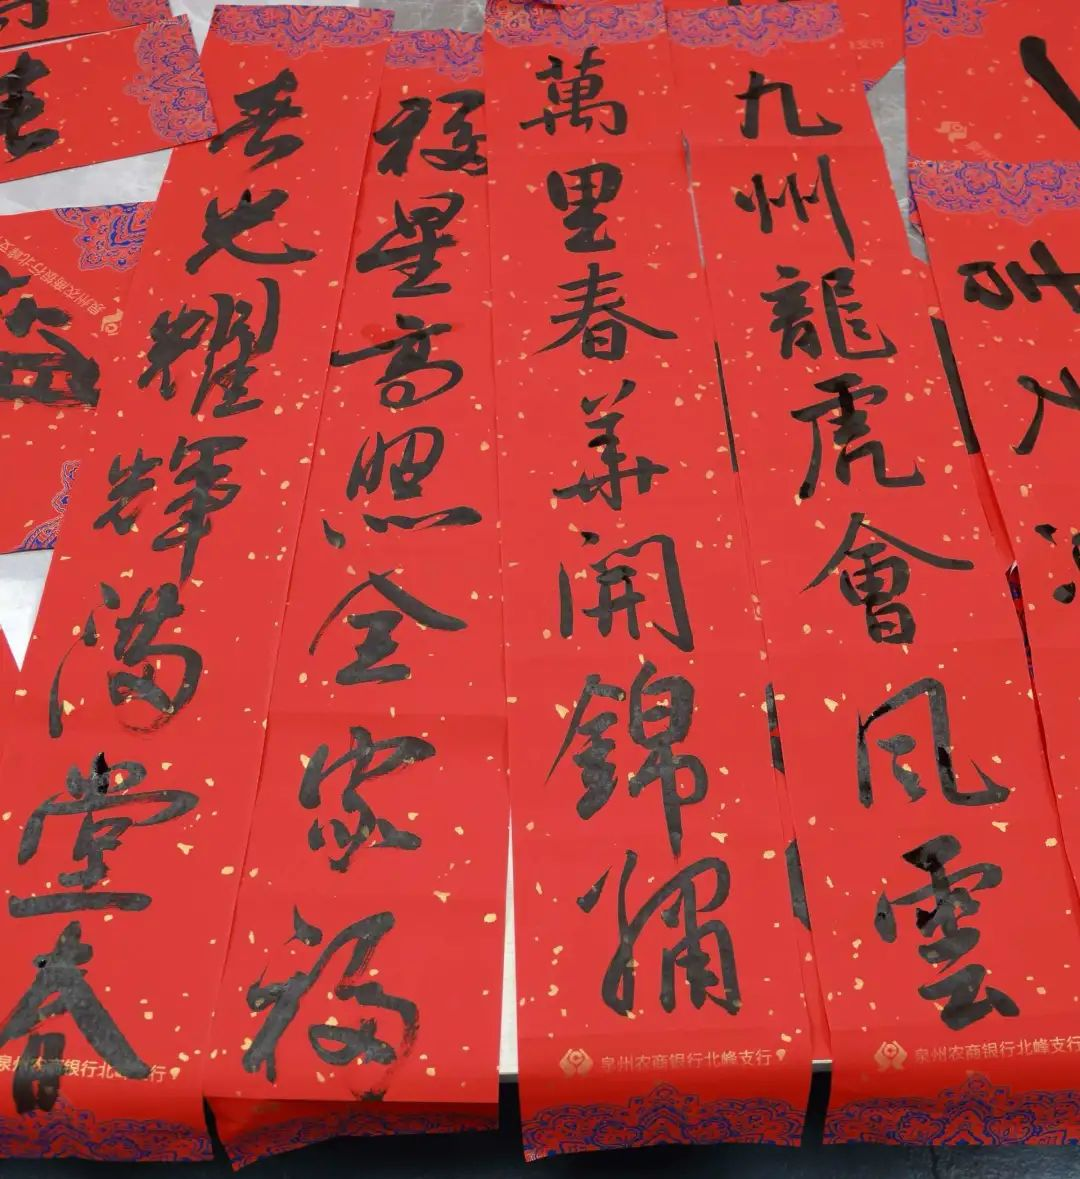 九州龍虎會风雲
萬里春華開錦繡
福星高照全家福
春光耀輝滿堂春
泉州农商银行北峰支行
泉州农商银行北峰支行
泉州农商银行北峰支行
泉州农商银行北峰支行
支行